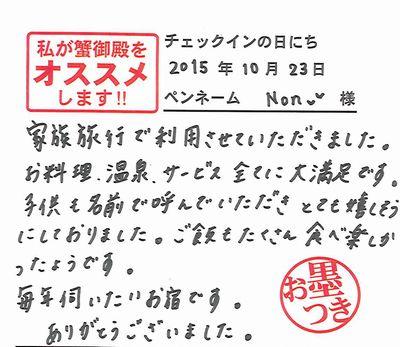 私が蟹御殿を
オススメ
します!!
チェックインの日にち
2015 年 10 月 23日
ペンネーム Non 様
家族旅行で利用させていただきました。
お料理、温泉、サービス 全てに大満足です。
子供も名前で呼んでいただき とても嬉しそう
にしておりました。ご飯もたくさん食べ楽しか
ったようです。
毎年伺いたいお宿です。
ありがとうございました。
お墨
つき